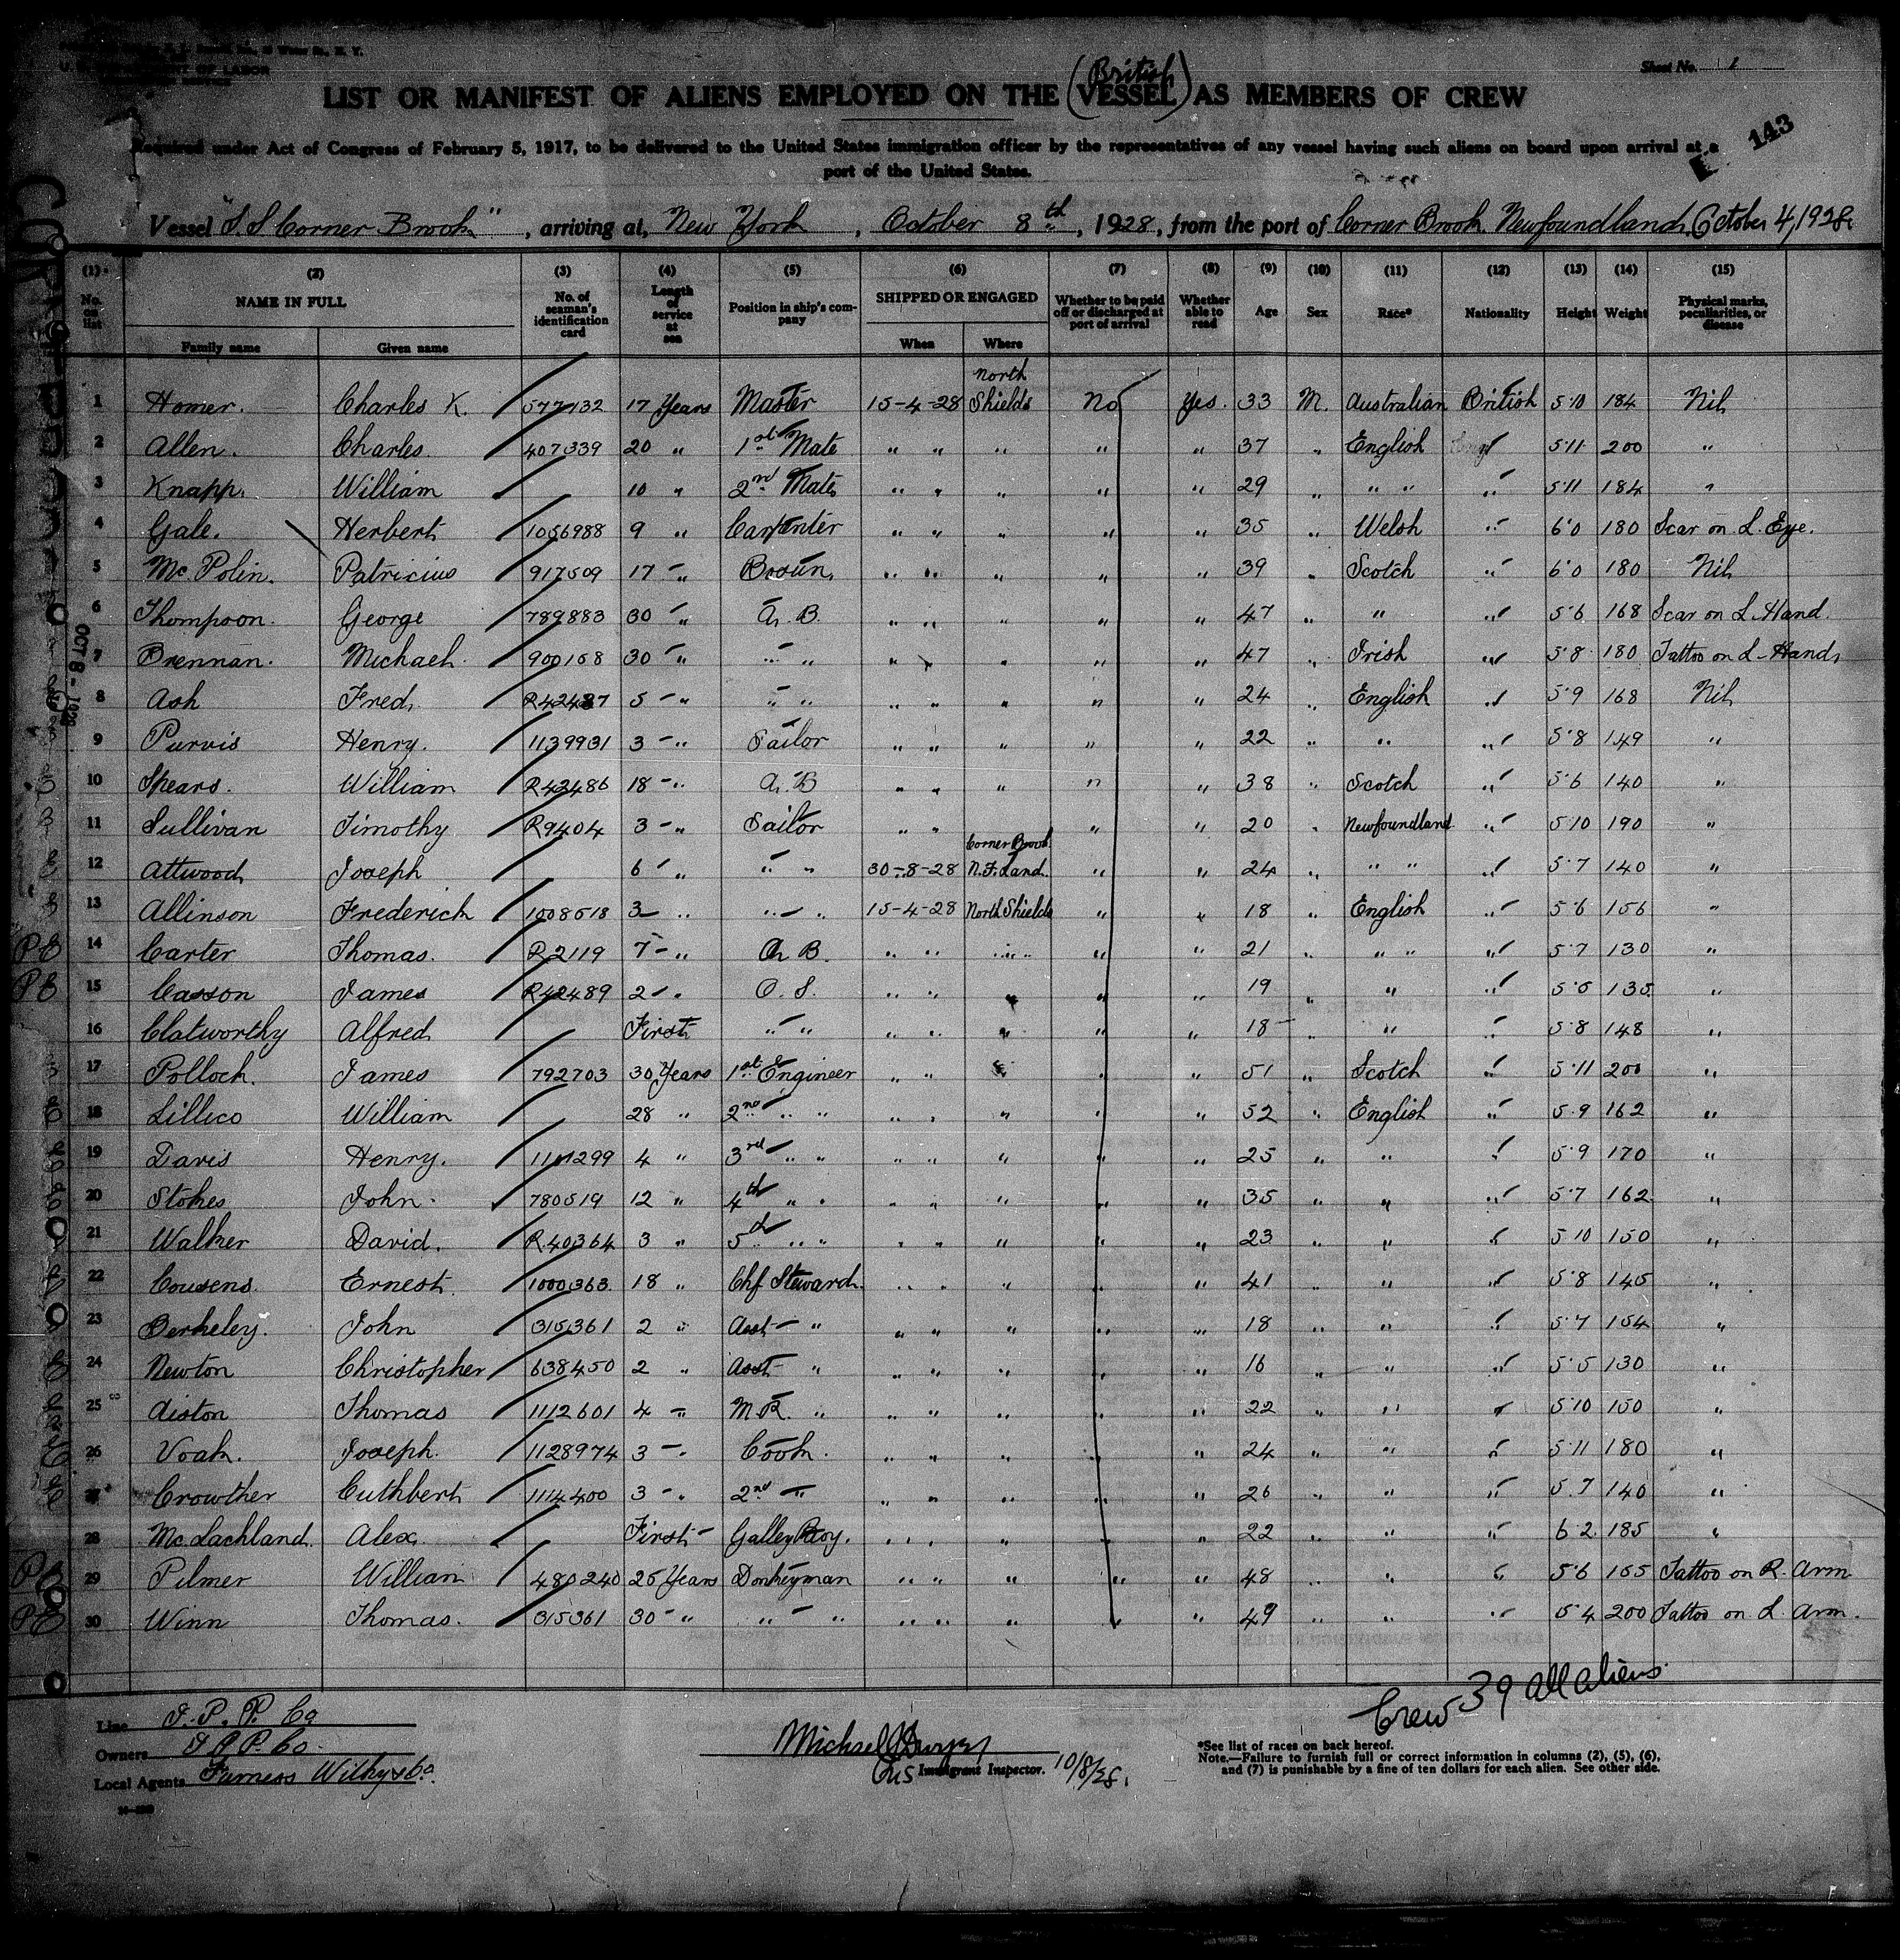 Sheet No. 1
LIST OR MANIFEST OF ALIENS EMPLOYED ON THE (British VESSEL) AS MEMBERS OF CREW
143
Required under Act of Congress of February 5, 1917, to be delivered to the United States immigration officer by the representatives of any vessel having such aliens on board upon arrival at a
port of the United States.
Vessel "S.S Corner Brook", arriving at, New York, October 8th, 1928, from the port of Corner Brook Newfoundland, October 4, 1928.
(1) (2) (3) (4) (5) (6) (7) (8) (9) (10) (11) (12) (13) (14) (15)
No. on list NAME IN FULL Family name Given name No. of seaman's identification card Length of service at sea Position in ship's company SHIPPED OR ENGAGED When Where Whether to be paid off or discharged at port of arrival Whether able to read Age Sex Race* Nationality Height Weight Physical marks, peculiarities, or disease
1 Homer. Charles K. 577732 17 Years Master 15-4-28 North Shields No Yes. 33 M. Australian British 5'10 184 Nil
2 Allen. Charles. 407339 20 " 1st Mate " " " " " 37 " English " 5'11 200 "
3 Knapp. William 10 " 2nd Mate " " " " " 29 " " " " 5'11 184 "
4 Gale. Herbert 1056988 9 " Carpenter " " " " " 35 " Welsh " 6'0 180 Scar on L. Eye.
5 Mc Polin. Patricius 917509 17 " Bosun, " " " " " 39 " Scotch " 6'0 180 Nil
6 Thompson. George 789883 30 " A. B. " " " " " 47 " " " 5'6 168 Scar on L. Hand.
7 Brennan. Michael. 900158 30 " " " " " " " " 47 " Irish " 5'8 180 Tattoo on L-Hand,
8 Ash Fred. R42487 5 " " " " " " " " 24 " English " 5'9 168 Nil
9 Purvis Henry. 1139931 3 " Sailor " " " " " 22 " " " 5'8 149 "
10 Spears. William R42486 18 " A. B " " " " " 38 " Scotch " 5'6 140 "
11 Sullivan Timothy R9404 3 " Sailor " " " " " 20 " Newfoundland " 5'10 190 "
12 Attwood Joseph 6 " " " 30-8-28 Corner Brook N.F. Land. " " 24 " " " " 5'7 140 "
13 Allinson Frederick 1008518 3 " " " 15-4-28 North Shields " " 18 " English " 5'6 156 "
14 Carter Thomas. R2119 7 " A. B. " " " " " 21 " " " " 5'7 130 "
15 Casson James R42489 2 " O. S. " " " " " 19 " " " 5'5 135 "
16 Clatworthy Alfred First " " " " " " " 18 " " 5'8 148 "
17 Pollock. James 792703 30 Years 1st Engineer " " " " 51 " Scotch " 5'11 200 "
18 Lillico William 28 " 2nd " " " " " " " 52 " English " 5'9 162 "
19 Davis Henry. 1101299 4 " 3rd " " " " " " " 25 " " " 5'9 170 "
20 Stokes John. 780519 12 " 4th " " " " " " " 35 " " " 5'7 162 "
21 Walker David. R.40364 3 " 5th " " " " " " " 23 " " " 5'10 150 "
22 Cousens. Ernest. 1000363. 18 " Chf Steward. " " " " " 41 " " " 5'8 145 "
23 Berkeley. John 315361 2 " Asst " " " " " " 18 " " " 5'7 154 "
24 Newton Christopher 638450 2 " Asst " " " " " " 16 " " " 5'5 130 "
25 Aiston Thomas 1112601 4 " M.R. " " " " " " 22 " " " 5'10 150 "
26 Voak. Joseph. 1128974 3 " Cook. " " " " " 24 " " " 5'11 180 "
27 Crowther Cuthbert 1114400 3 " 2nd " " " " " " 26 " " " 5.7 140 "
28 Mc Lachland. Alex. First Galley Boy. " " " " " 22 " " " 6'2 185 "
29 Pilmer William 480240 25 Years Donkeyman " " " " " 48 " " " 5'6 155 Tattoo on R. Arm
30 Winn Thomas. 315361 30 " " " " " " " " 49 " " " 5'4 200 Tattoo on L. Arm.
Crew 39 all aliens
Line I. P. P. Co
Owners I P P. Co.
Local Agents Furness Withy & Co.
Michael
Immigrant Inspector. 10/8/28.
*See list of races on back hereof.
Note.—Failure to furnish full or correct information in columns (2), (5), (6),
and (7) is punishable by a fine of ten dollars for each alien. See other side.
OCT 8 - 1928